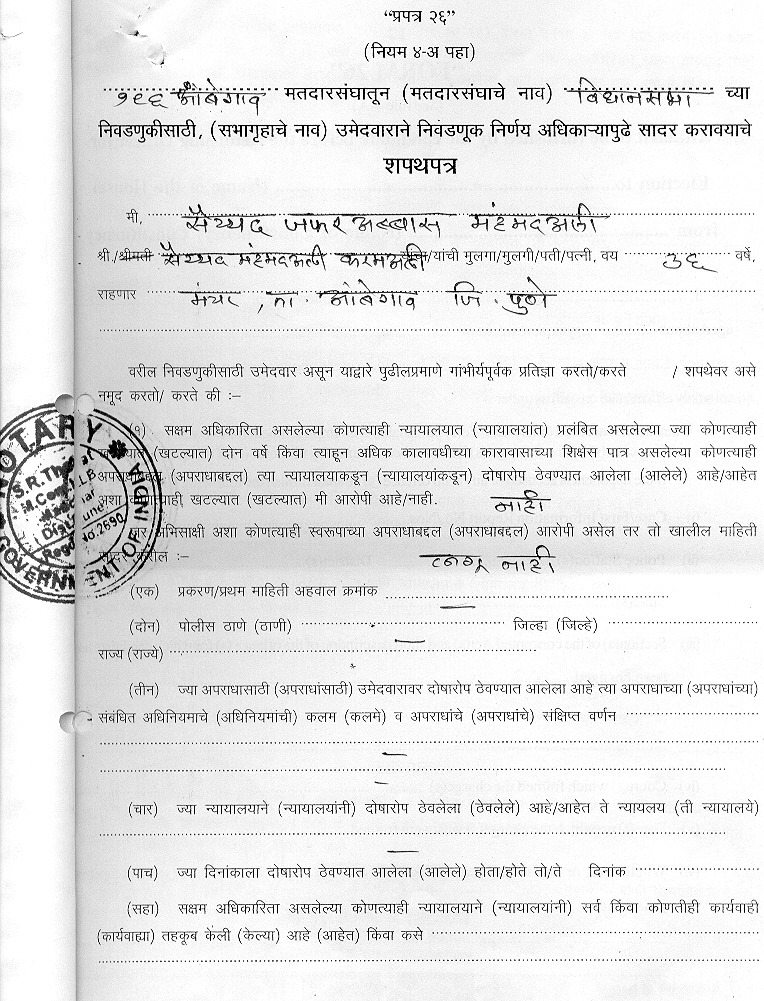 “प्रपत्र २६”
(नियम ४-अ पहा)
१९६ आंबेगाव मतदारसंघातून (मतदारसंघाचे नाव) विधानसभा च्या
निवडणुकीसाठी, (सभागृहाचे नाव) उमेदवाराने निवडणूक निर्णय अधिकाऱ्यापुढे सादर करावयाचे
शपथपत्र
मी, सैय्यद जफरअब्बास महंमदअली
श्री./श्रीमती सैय्यद महंमदअली करमअली /यांची मुलगा/मुलगी/पती/पत्नी, वय ३६ वर्षे,
राहणार मंचर, ता. आंबेगाव जि. पुणे
वरील निवडणुकीसाठी उमेदवार असून याद्वारे पुढीलप्रमाणे गांभीर्यपूर्वक प्रतिज्ञा करतो/करते / शपथेवर असे
नमूद करतो/ करते की :–
(१) सक्षम अधिकारिता असलेल्या कोणत्याही न्यायालयात (न्यायालयांत) प्रलंबित असलेल्या ज्या कोणत्याही
(खटल्यात) दोन वर्षे किंवा त्याहून अधिक कालावधीच्या कारावासाच्या शिक्षेस पात्र असलेल्या कोणत्याही
अपराधाबद्दल (अपराधाबद्दल) त्या न्यायालयाकडून (न्यायालयांकडून) दोषारोप ठेवण्यात आलेला (आलेले) आहे/आहेत
अशा कोणत्याही खटल्यात (खटल्यात) मी आरोपी आहे/नाही. नाही
जर अभिसाक्षी अशा कोणत्याही स्वरूपाच्या अपराधाबद्दल (अपराधाबद्दल) आरोपी असेल तर तो खालील माहिती
सादर करील :– लागू नाही
(एक) प्रकरण/प्रथम माहिती अहवाल क्रमांक —
(दोन) पोलीस ठाणे (ठाणी) — जिल्हा (जिल्हे)
राज्य (राज्ये)
(तीन) ज्या अपराधासाठी (अपराधांसाठी) उमेदवारावर दोषारोप ठेवण्यात आलेला आहे त्या अपराधाच्या (अपराधांच्या)
संबंधित अधिनियमाचे (अधिनियमांची) कलम (कलमे) व अपराधांचे (अपराधांचे) संक्षिप्त वर्णन
—
—
(चार) ज्या न्यायालयाने (न्यायालयांनी) दोषारोप ठेवलेला (ठेवलेले) आहे/आहेत ते न्यायलय (ती न्यायालये)
—
(पाच) ज्या दिनांकाला दोषारोप ठेवण्यात आलेला (आलेले) होता/होते तो/ते दिनांक
(सहा) सक्षम अधिकारिता असलेल्या कोणत्याही न्यायालयाने (न्यायालयांनी) सर्व किंवा कोणतीही कार्यवाही
(कार्यवाह्या) तहकूब केली (केल्या) आहे (आहेत) किंवा कसे
NOTARY
GOVERNMENT OF INDIA
No.2590